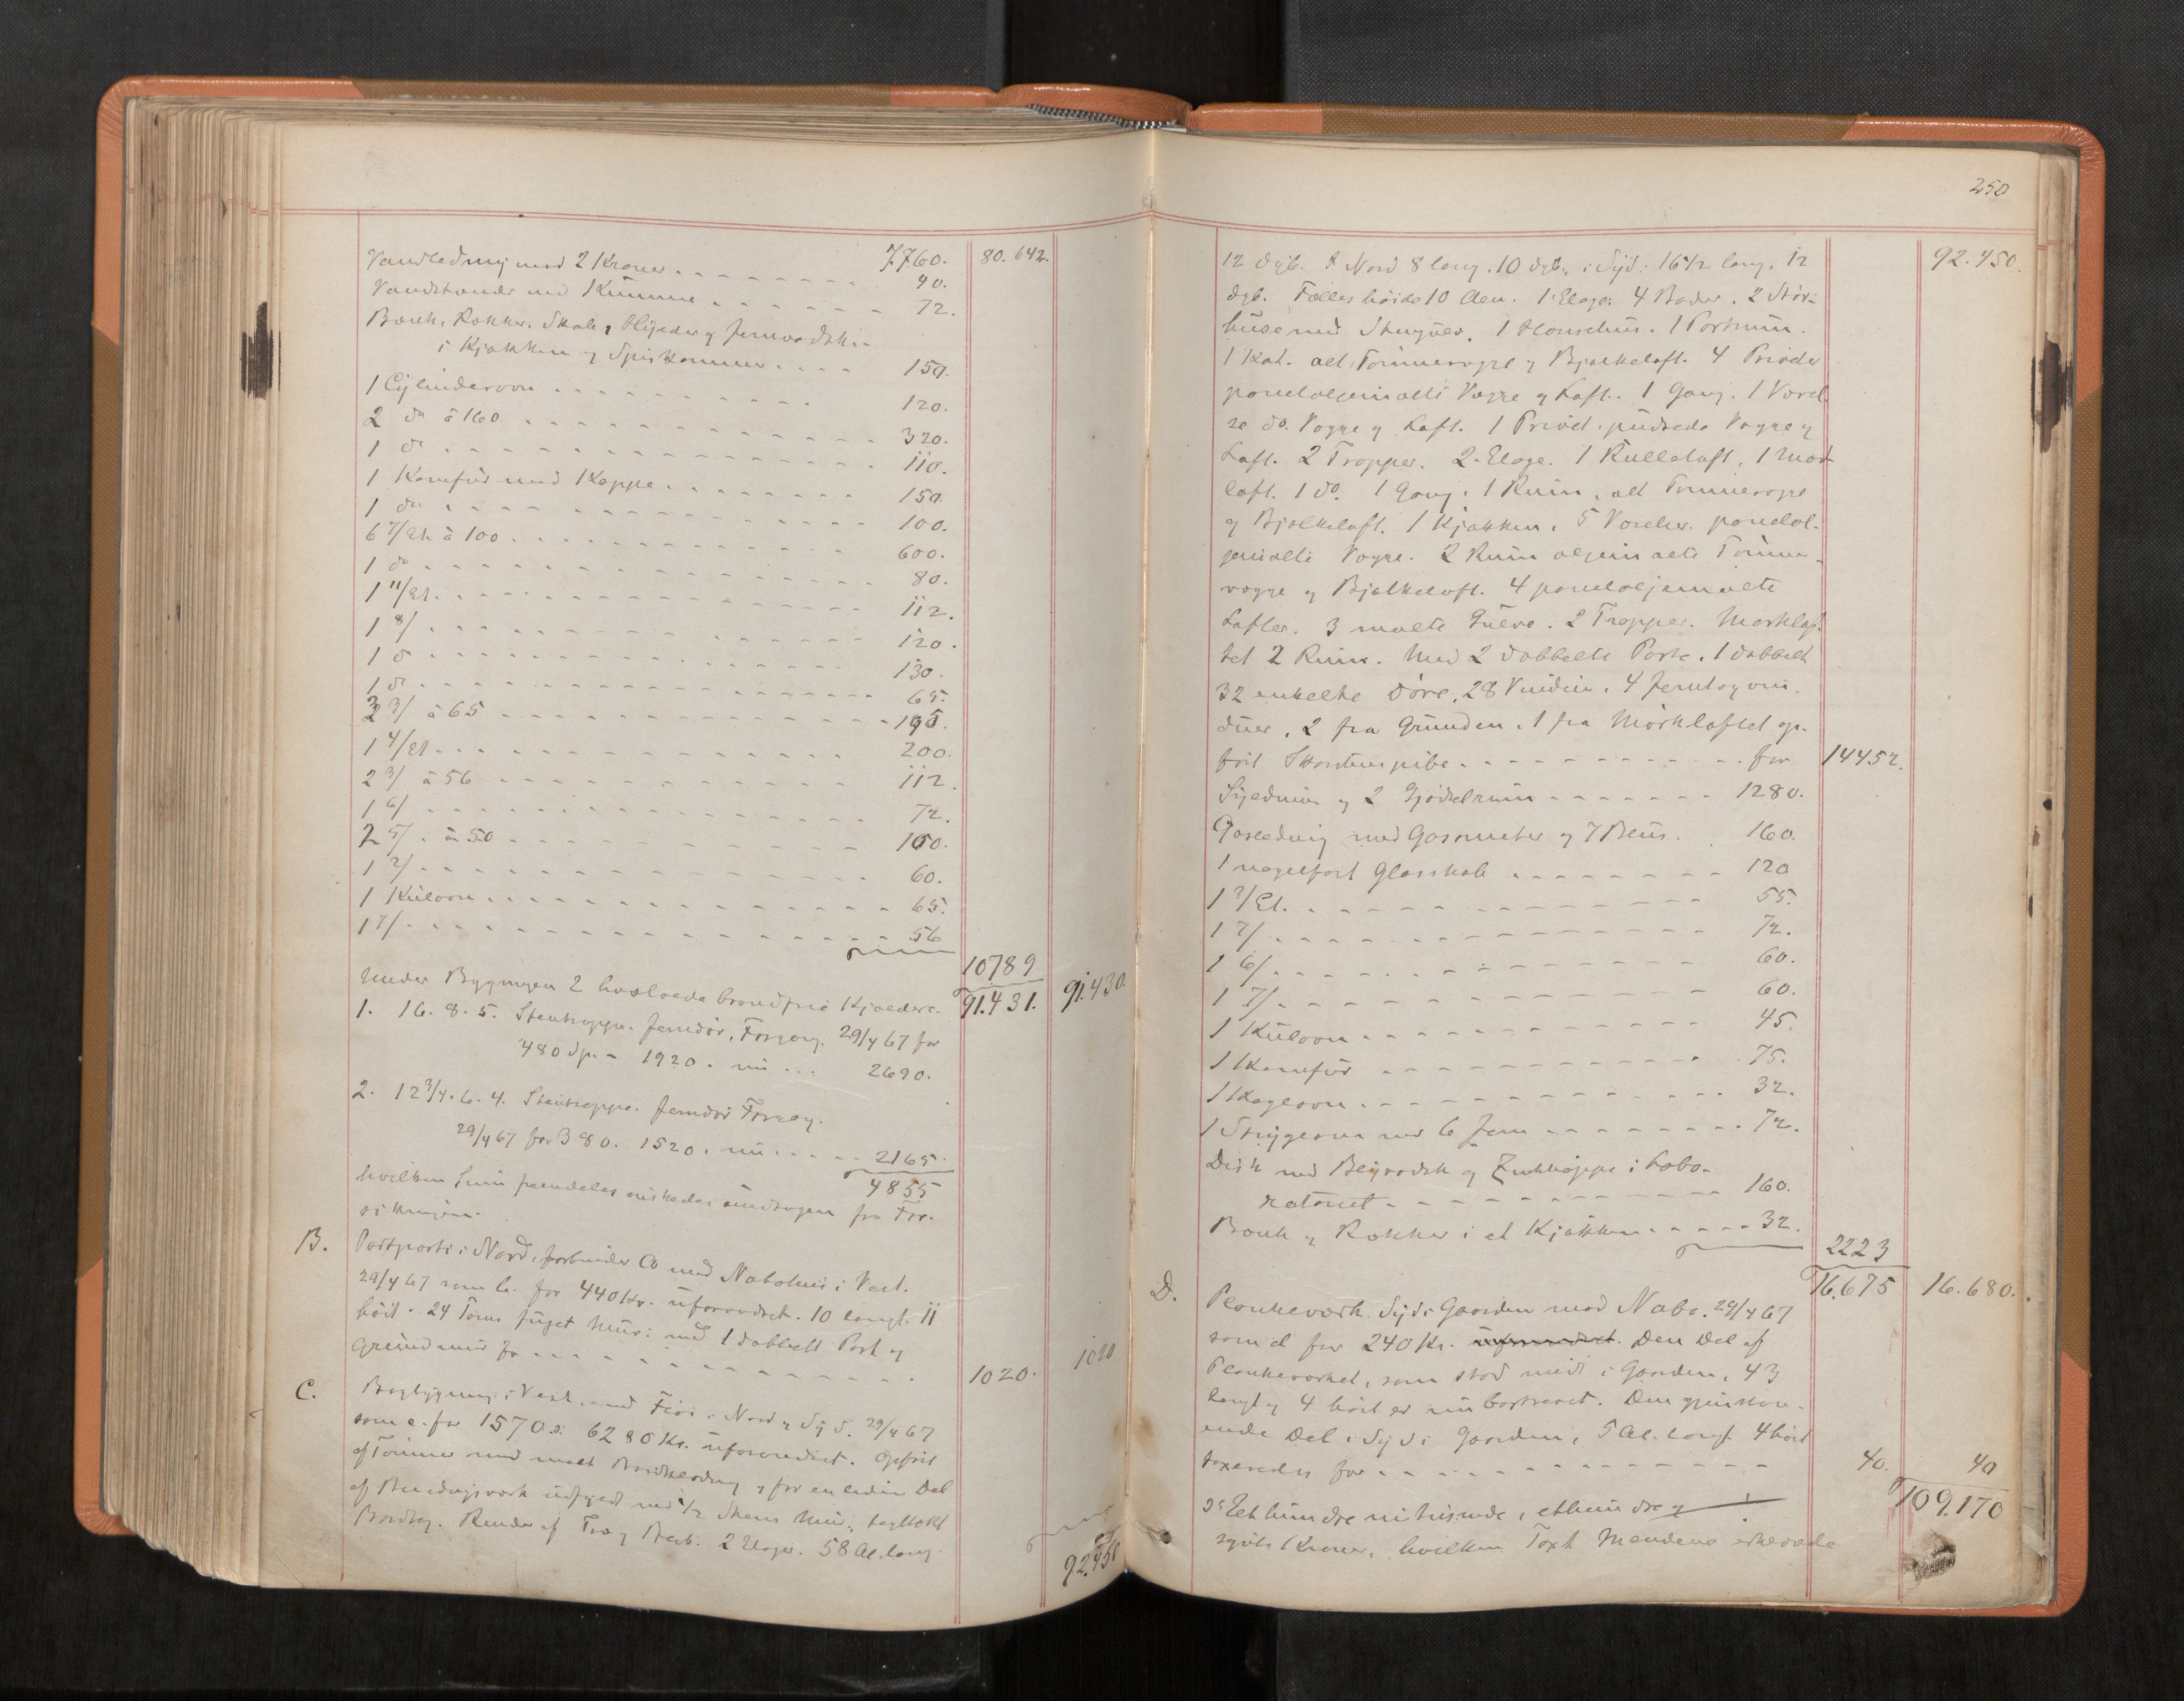 7.760. 80.642.
Vandledning med 2 Kraner 90.
Vandstænder med 1 Kumme 72.
Bænk, Rækker, Skabe, Hylder og Jernvadsk
i Kjøkken og Spiskammer 150.
1 Cylinderovn 120.
2 do à 160 320.
1 do 110.
1 Komfur med Kappe 150
1 do 100.
6 7/Et. à 100 600.
1 do 80.
1 11/Et. 112.
1 8/ 120.
1 do 130.
1 do 65.
3 3/ à 65 195.
1 4/Et. 200.
2 3/ à 56 112.
1 6/ 72.
2 5/. à 50 100.
1 2/ 60.
1 Kulovn 65.
1 7/ 56
10789
Under Bygningen 2 hvælvede brandfrie Kjældere. 91.431. 91.430.
1. 16. 8. 5. Stentrappe. Jerndør, Forgang. 29/4 67 for
480 Sp. = 1920. nu 2690.
2. 12 3/4. 6. 4. Stentrappe. Jerndør Forgang.
29/4 67 for 380. 1520. nu 2165.
4855
hvilken Sum fremdeles ønskedes undtagen fra For-
sikringen.
B. Portparti i Nord, forbinder A med Nabohus i Vest.
29/4 67 som b. for 440 Kr. uforandret. 10 langt. 11
høit. 24 Toms fuget Mur: med 1 dobbelt Port og
Grundmur for 1020. 1020
C. Bagbygning i Vest, med Fløi i Nord og Syd. 29/4 67
som c. for 1570 s: 6280 Kr. uforandret. Opført
af Tømmer med malt Bordklædning og for en liden Del
af Bindingsværk udfyldt med 1/2 Stens Mur, tagtækt
Bordtag. Render af Træ og Blik. 2 Etager. 58 Al. lang.
92.450
250
12 dyb. I Nord 8 lang. 10 dyb, i Syd: 16 1/2 lang, 12 92.450.
dyb. Fælles høide 10 Alen. 1. Etage: 4 Boder. 2 Stør-
huse med 1 Hønsehus. 1 Portrum.
1 Kot. alt Tømmervægge og Bjælkeloft. 4 Priveter
paneloljemalte Vægge og Loft. 1 Gang. 1 Værel-
se do. Vægge og Loft. 1 Privet. pudsede Vægge og
Loft. 2 Trapper. 2. Etage. 1 Rulleloft, 1 Mat
loft. 1 do. 1 Gang. 1 Rum, alt Tømmervægge
og Bjælkeloft. 1 Kjøkken. 5 Værelser. panelol-
jemalte Vægge. 2 Rum oljemalte Tømmer-
vægge og Bjælkeloft. 4 paneloljemalte
Lofter. 3 malte Gulve. 2 Trapper. Mørklof-
tet 2 Rum. Med 2 dobbelte Porte. 1 dobbelt
32 enkelte Døre, 28 Vinduer, 4 Jerntagvin-
duer, 2 fra Grunden. 1 fra Mørkloftet op-
ført Skorstenspibe for 14452.
2 Gjødselrum 1280.
Gasledning med Gasmeter og 7 Blus. 160.
1 nagelfast Glasskab 120
1 3/Et. 55.
1 7/ 72.
1 6/ 60.
1 7/ 60.
1 Kulovn 45.
1 Komfur 75.
1 Kogeovn 32.
1 Strygeovn med 6 Jern 72.
Disk med Blyvadsk og Zinkkappe i Labo-
ratoriet 160.
Bænk og Rækker i et Kjøkken 32.
2223
16.675 16.680.
D. Plankeværk Syd i Gaarden mod Nabo. 29/4 67
som d for 240 Kr. uforandret. Den Del af
Plankeværket, som stod midt i Gaarden, 43
langt og 4 høit er nu borttaget. Den gjenstaa-
ende Del i Syd i Gaarden, 5 Al. langt 4 høit
taxeredes for 40. 40
109.170
s: Et hundre nitusinde, ethundre og
sytti Kroner, hvilken Taxt Mændene erklærede